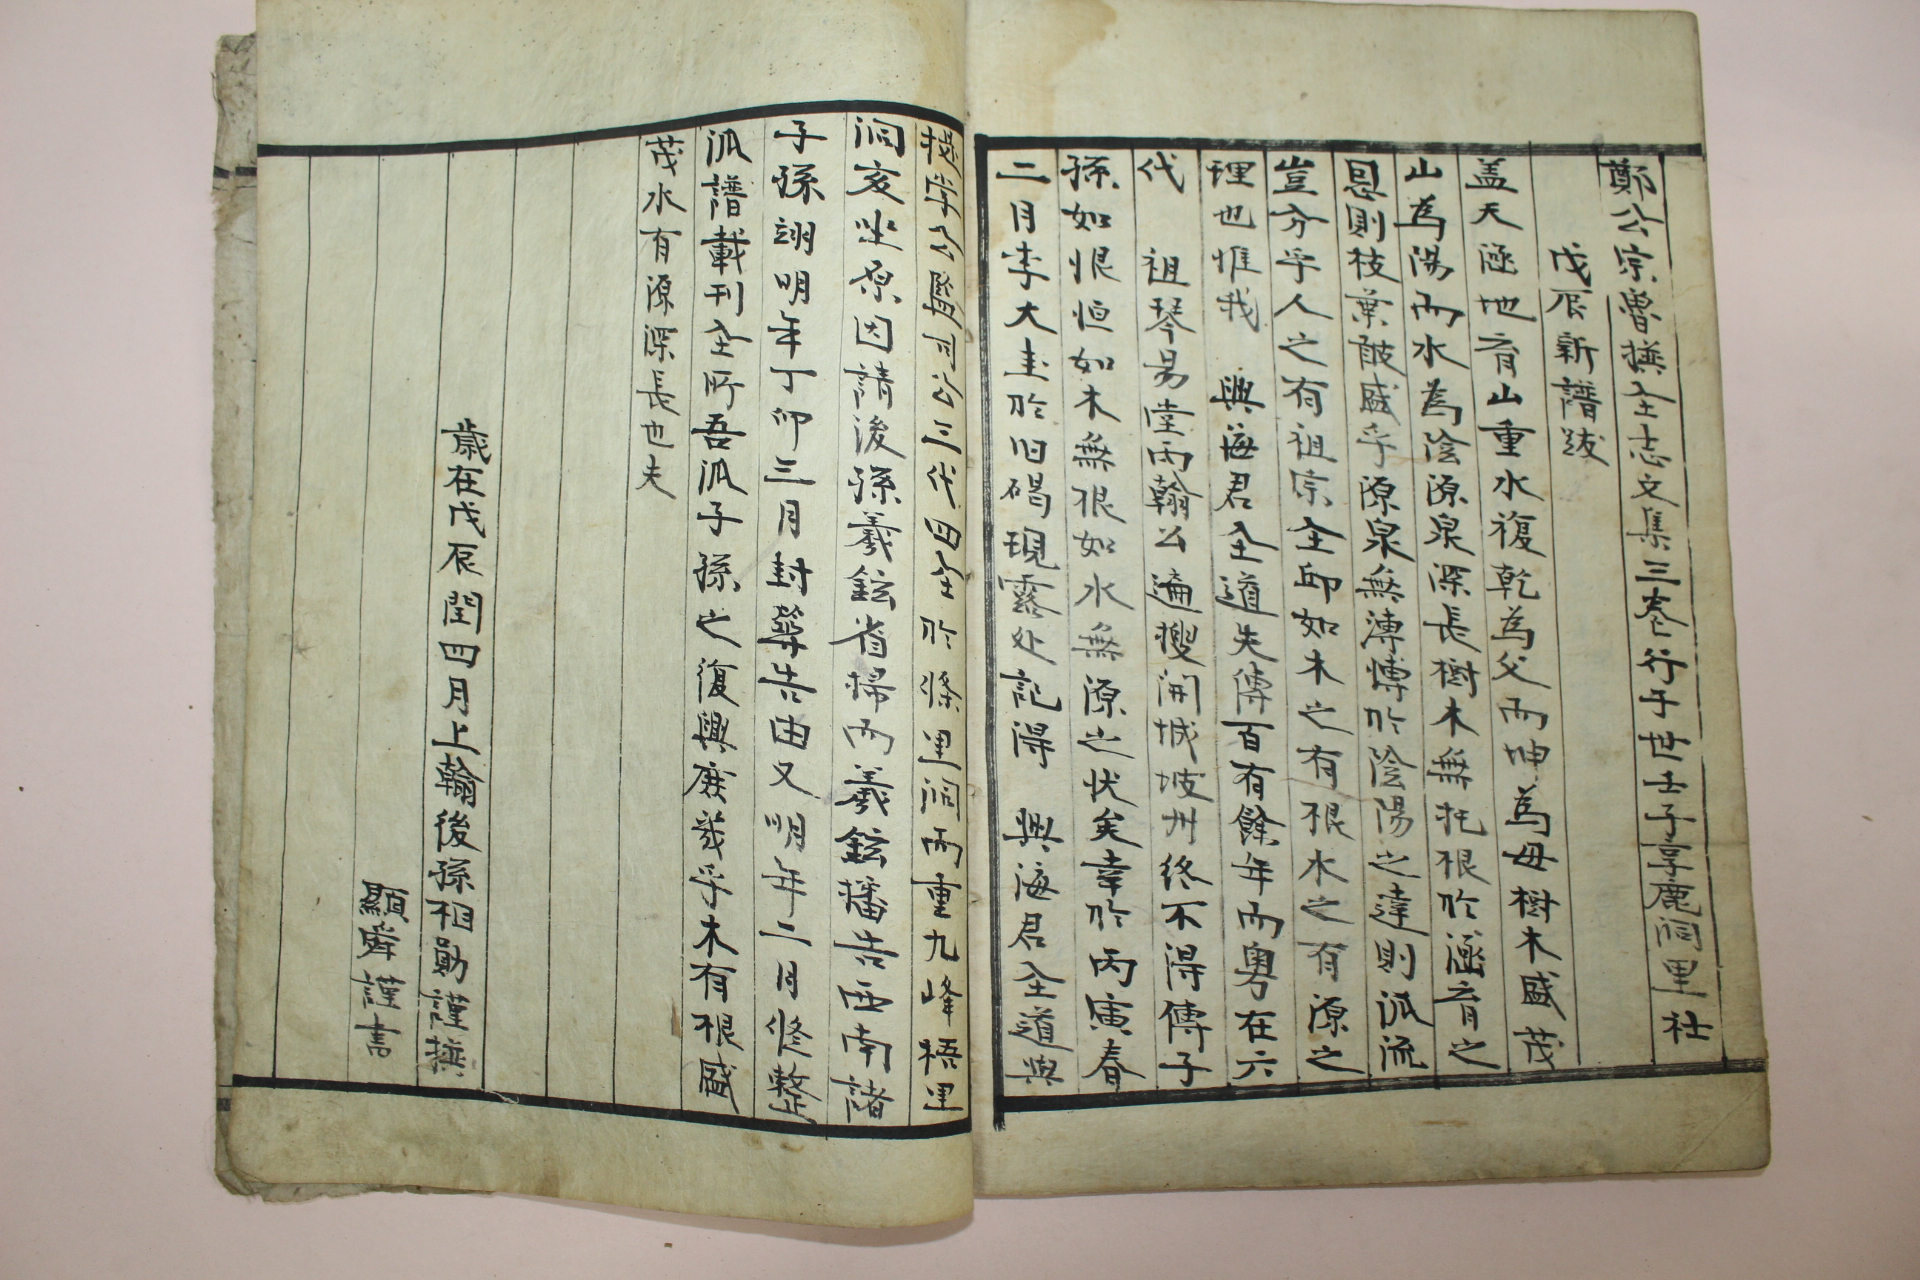 鄭公宗魯撰全志文集三卷行于世壬子享鹿洞里社
戊辰新譜跋
盖天涵地育山重水複乾為父而坤為母樹木盛茂
山為陽而水為陰源泉深長樹木無托根於涵育之
恩則枝葉敢盛乎源泉無溥慱於陰陽之達則派流
豈夯乎人之有祖宗全邱如木之有根水之有源之
理也惟我 興海君全道失傳百有餘年而粤在六
代 祖琴易堂丙翰公遍搜開城坡州終不得傳子
孫如恨恒如木無根如水無源之状矣幸於丙寅春
二月李大圭於旧碣現露处記得 興海君全道與
公監司公三代四全於條里洞而重九峰梧里
洞亥坐原因請後孫羲鉉省掃而羲鉉播告西南諸
子孫翊明年丁卯三月封築告由又明年二月修整
派譜載刊全所吾派子孫之復興庶幾乎木有根盛
茂水有源深長也夫
歲在戊辰閏四月上翰後孫相勛謹撰
顯舜謹書